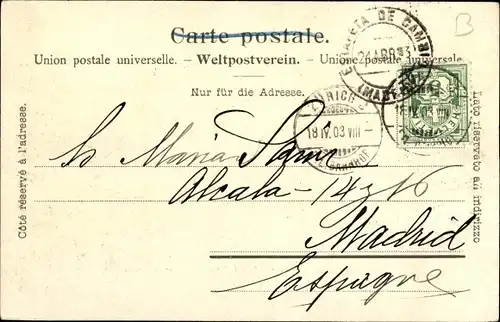 B
Carte postale.
Union postale universelle. – Weltpostverein. – Unione postale universale
Nur für die Adresse.
Côté réservé à l'adresse.
Lato riservato all' indirizzo
18 IV. 03 VIII –
Maria
Alcala - 14 y 16
Madrid
Espagne